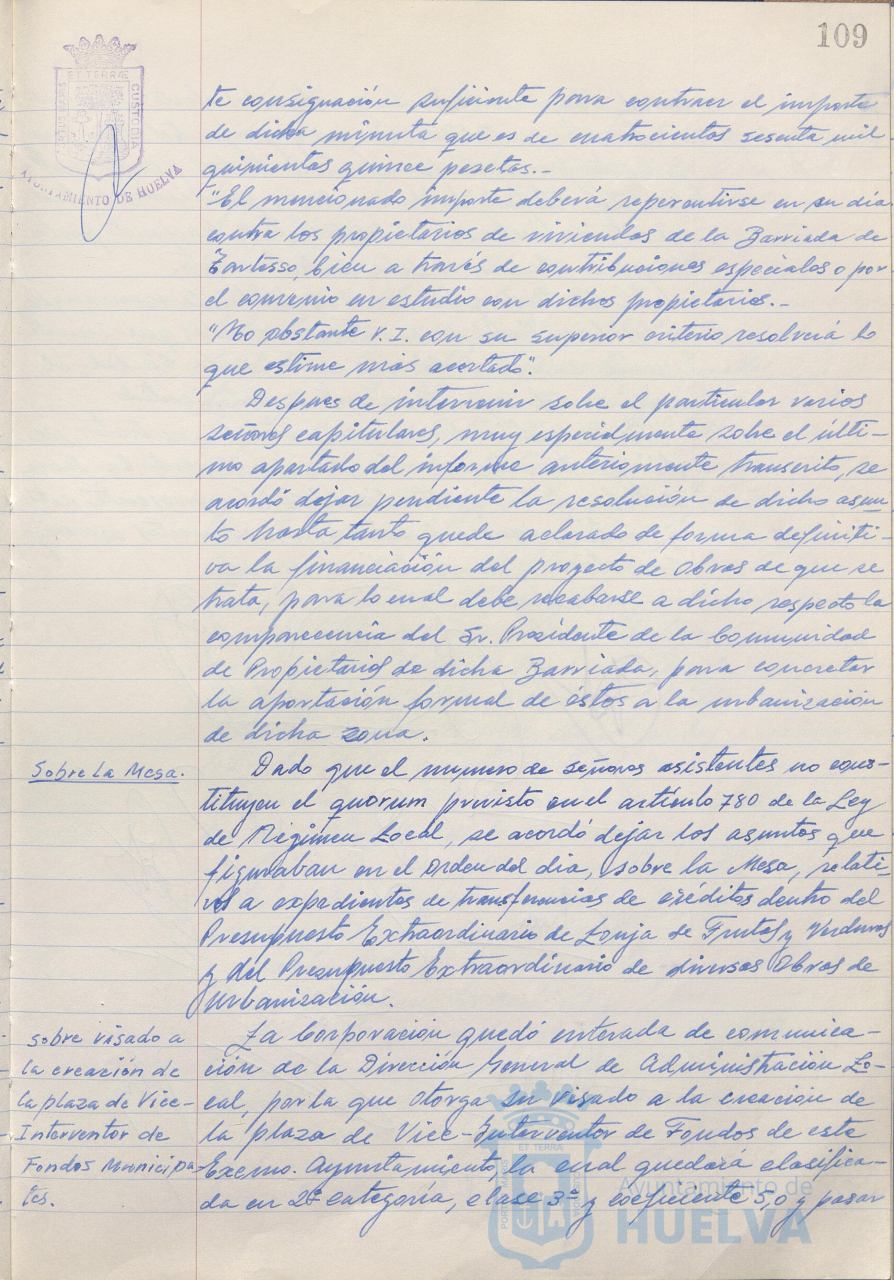 109
ET TERRAE
CUSTODIA
AYUNTAMIENTO DE HUELVA
te consignación suficiente para contraer el importe
de dicha minuta que es de cuatrocientas sesenta mil
quinientas quince pesetas.-
"El mencionado importe deberá repercutirse en su día
contra los propietarios de viviendas de la Barriada de
Tartesso, bien a través de contribuciones especiales o por
el convenio en estudio con dichos propietarios.-
"No obstante V.I. con su superior criterio resolverá lo
que estime más acertado".
Despues de intervenir sobre el particular varios
señores capitulares, muy especialmente sobre el últi-
mo apartado del informe anteriormente transcrito, se
acordó dejar pendiente la resolución de dicho asun-
to hasta tanto quede aclarado de forma definiti-
va la financiación del proyecto de Obras de que se
trata, para lo cual debe recabarse a dicho respecto la
comparecencia del Sr. Presidente de la Comunidad
de Propietarios de dicha Barriada, para concretar
la aportación formal de éstos a la urbanización
de dicha zona.
Sobre La Mesa.
Dado que el numero de señores asistentes no cons-
tituyen el quorum previsto en el artículo 780 de la Ley
de Régimen Local, se acordó dejar los asuntos que
figuraban en el Orden del dia, sobre la Mesa, relati-
vos a expedientes de transferencias de créditos dentro del
Presupuesto Extraordinario de Lonja de Frutas y Verduras
y del Presupuesto Extraordinario de diversas Obras de
Urbanización.
Sobre visado a
la creación de
la plaza de Vice-
Interventor de
Fondos Municipa-
les.
La Corporación quedó enterada de comunica-
ción de la Dirección General de Administración Lo-
cal, por la que otorga su visado a la creación de
la plaza de Vice-Interventor de Fondos de este
Excmo. Ayuntamiento, la cual quedará clasifica-
da en 2ª categoría, clase 3ª y coeficiente 5,0 y pasar
ET TERRAE
Ayuntamiento de
HUELVA